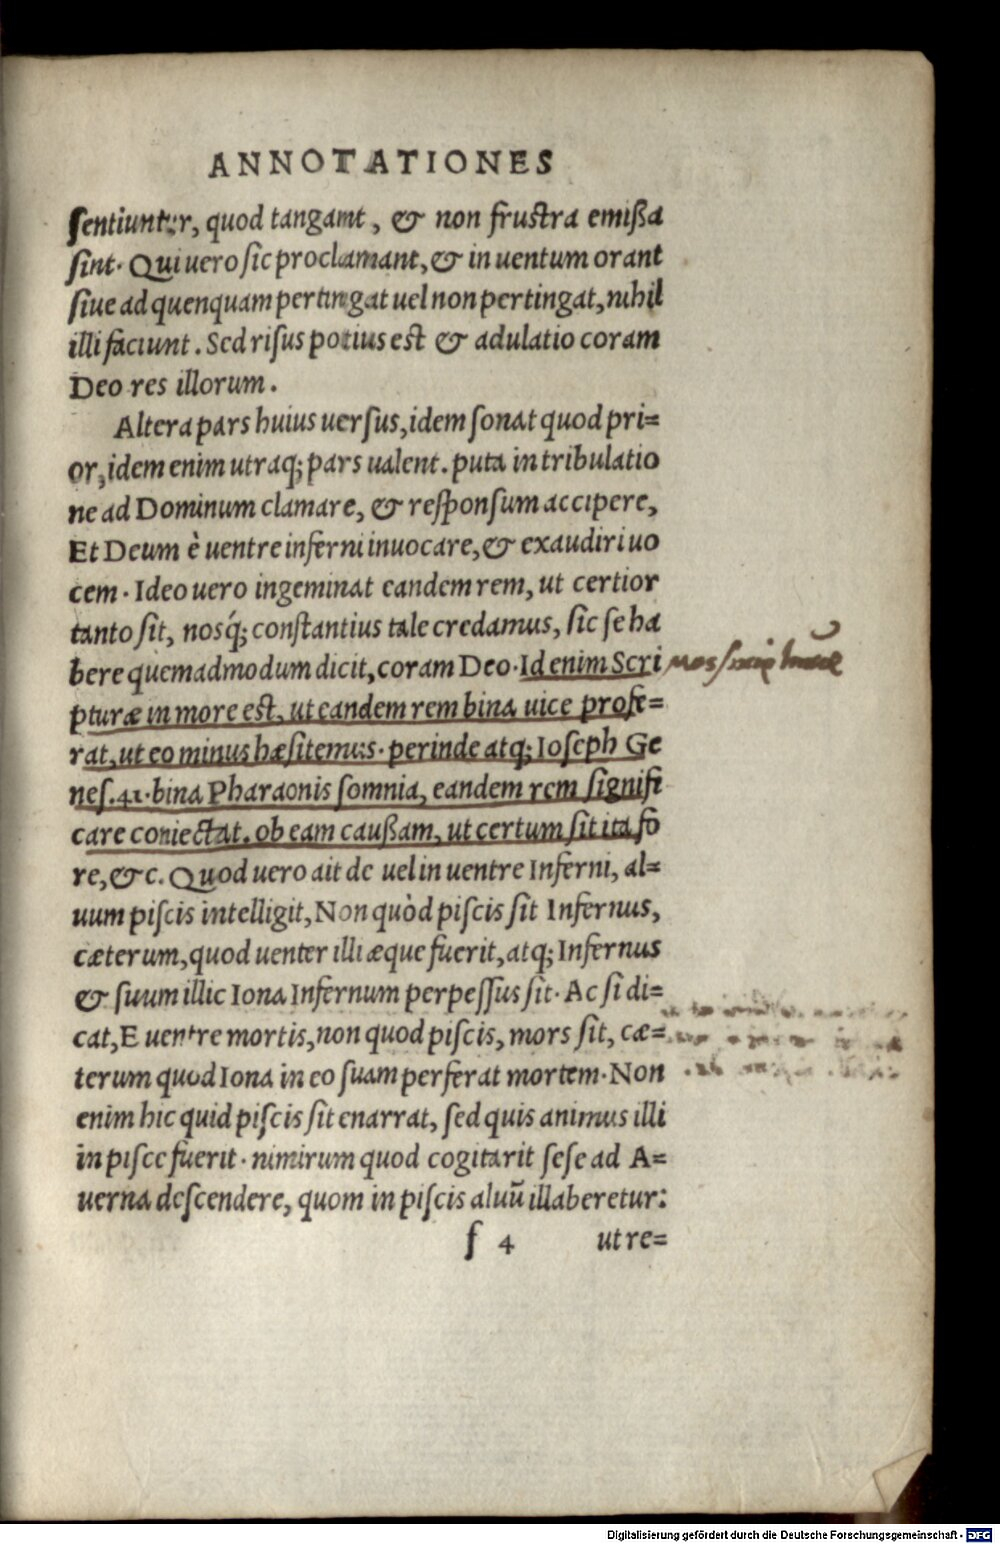 ANNOTATIONES
sentiuntur, quod tangant, & non frustra emißa
sint. Qui vero sic proclamant, & in uentum orant
siue ad quenquam pertingat uel non pertingat, nihil
illi faciunt. Sed risus potius est & adulatio coram
Deo res illorum.
Altera pars huius uersus, idem sonat quod pri=
or, idem enim utraq; pars ualent. puta in tribulatio
ne ad Dominum clamare, & responsum accipere,
Et Deum è uentre inferni inuocare, & exaudiri uo
cem. Ideo uero ingeminat eandem rem, ut certior
tanto sit, nosq́; constantius tale credamus, sic se ha
bere quemadmodum dicit, coram Deo. Id enim Scri
pturæ in more est, ut eandem rem bina uice profe=
rat, ut eo minus hæsitemus. perinde atq; Ioseph Ge
nes. 41. bina Pharaonis somnia, eandem rem signifi
care coniectat. ob eam caußam, ut certum sit ita fo
re, &c. Quod uero ait de uel in uentre Inferni, al=
uum piscis intelligit, Non quòd piscis sit Infernus,
cæterum, quod uenter illi æque fuerit, atq; Infernus
& suum illic Iona Infernum perpessus sit. Ac si di=
cat, E uentre mortis, non quod piscis, mors sit, cæ=
terum quod Iona in eo suam perferat mortem. Non
enim hic quid piscis sit enarrat, sed quis animus illi
in pisce fuerit. nimirum quod cogitarit sese ad A=
uerna descendere, quom in piscis aluū illaberetur:
f 4 ut re=
Digitalisierung gefördert durch die Deutsche Forschungsgemeinschaft - DFG